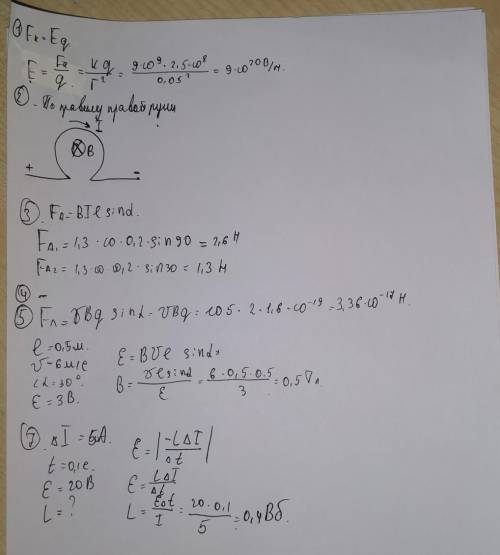 ① Fк = Eq
E = Fк/q = kq/r² = 9·10⁹·2,5·10⁸/0,05² = 9·10²⁰ В/м.
② . По правилу правой руки
I
⊗ B
+ −
③. Fл = BIl sinα.
Fл₁ = 1,3 · 10 · 0,2 · sin90 = 2,6 Н
Fл₂ = 1,3·10·0,2 · sin30 = 1,3 Н
④ −
⑤ Fл = VBq sinα = VBq = 105 · 2 · 1,6 · 10⁻¹⁹ = 3,36·10⁻¹⁷ Н.
l = 0,5 м.
V = 6 м/с ε = BVl sinα
α = 30°. B = Vl sinα/ε = 6 · 0,5 · 0,5/3 = 0,5 Тл
ε = 3 В.
⑦. ΔI = 5А. ε = |−LΔI/Δt|
t = 0,1 с.
ε = 20 В ε = LΔI/Δt
L = ? L = εΔt/I = 20 · 0,1/5 = 0,4 Вб.